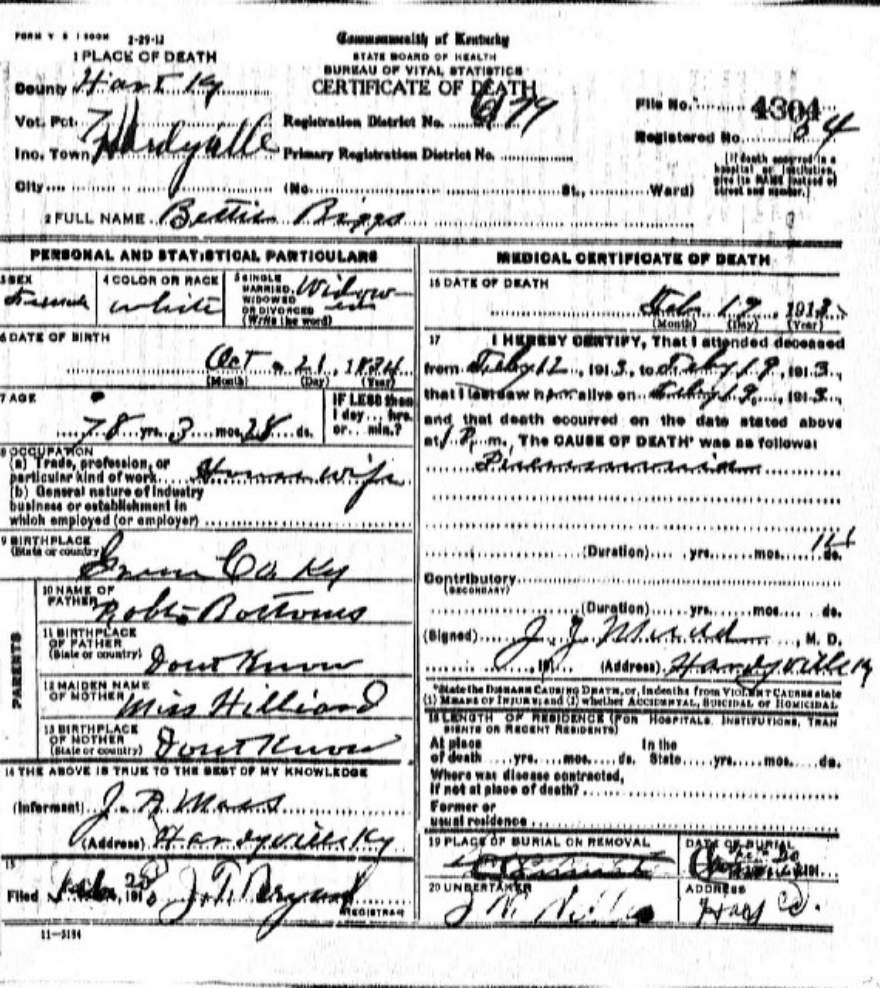 FORM V S 1 500M 2-29-12
Commonwealth of Kentucky
STATE BOARD OF HEALTH
BUREAU OF VITAL STATISTICS
CERTIFICATE OF DEATH
1 PLACE OF DEATH
County Hart Ky
Vot. Pct. 7
Registration District No.
File No. 4304
Registered No. 34
Inc. Town Hardyville
Primary Registration District No.
(If death occurred in a hospital or institution, give its NAME instead of street and number.)
City (No. St., Ward)
2 FULL NAME Bettie Biggs
PERSONAL AND STATISTICAL PARTICULARS
3 SEX Female
4 COLOR OR RACE white
5 SINGLE MARRIED, WIDOWED OR DIVORCED (Write the word) Widow
6 DATE OF BIRTH
Oct 21, 1834
(Month) (Day) (Year)
7 AGE
78 yrs. 3 mos. 28 ds.
IF LESS than
1 day ... hrs.
or ... min.?
8 OCCUPATION
(a) Trade, profession, or
particular kind of work House wife
(b) General nature of industry
business or establishment in
which employed (or employer)
9 BIRTHPLACE
(State or country) Green Co. Ky
PARENTS
10 NAME OF
FATHER Robt Bottoms
11 BIRTHPLACE
OF FATHER
(State or country) Dont Know
12 MAIDEN NAME
OF MOTHER Miss Hilliard
13 BIRTHPLACE
OF MOTHER
(State or country) Dont Know
14 THE ABOVE IS TRUE TO THE BEST OF MY KNOWLEDGE
(Informant) J. A. Moss
(Address) Hardyville Ky
15
Filed Feb 28, 191 J. T.
REGISTRAR
11-3184
MEDICAL CERTIFICATE OF DEATH
16 DATE OF DEATH
Feb 19, 1913
(Month) (Day) (Year)
17 I HEREBY CERTIFY, That I attended deceased
from Feby 12, 1913, to Feby 19, 1913,
that I last saw her alive on Feby 19, 1913
and that death occurred on the date stated above
at 1 P. m. The CAUSE OF DEATH* was as follows:
Pneumonia
(Duration) yrs. mos. ds.
Contributory
(SECONDARY)
(Duration) yrs. mos. ds.
(Signed) J. J. , M. D.
, 191 (Address) Hardyville Ky
*State the DISEASE CAUSING DEATH, or, in deaths from VIOLENT CAUSES state
(1) MEANS OF INJURY; and (2) whether ACCIDENTAL, SUICIDAL or HOMICIDAL
18 LENGTH OF RESIDENCE (FOR HOSPITALS, INSTITUTIONS, TRAN
SIENTS OR RECENT RESIDENTS)
At place In the
of death yrs. mos. ds. State yrs. mos. ds.
Where was disease contracted,
If not at place of death?
Former or
usual residence
19 PLACE OF BURIAL OR REMOVAL
DATE OF BURIAL
191
20 UNDERTAKER
J. N.
ADDRESS
Hart Co.